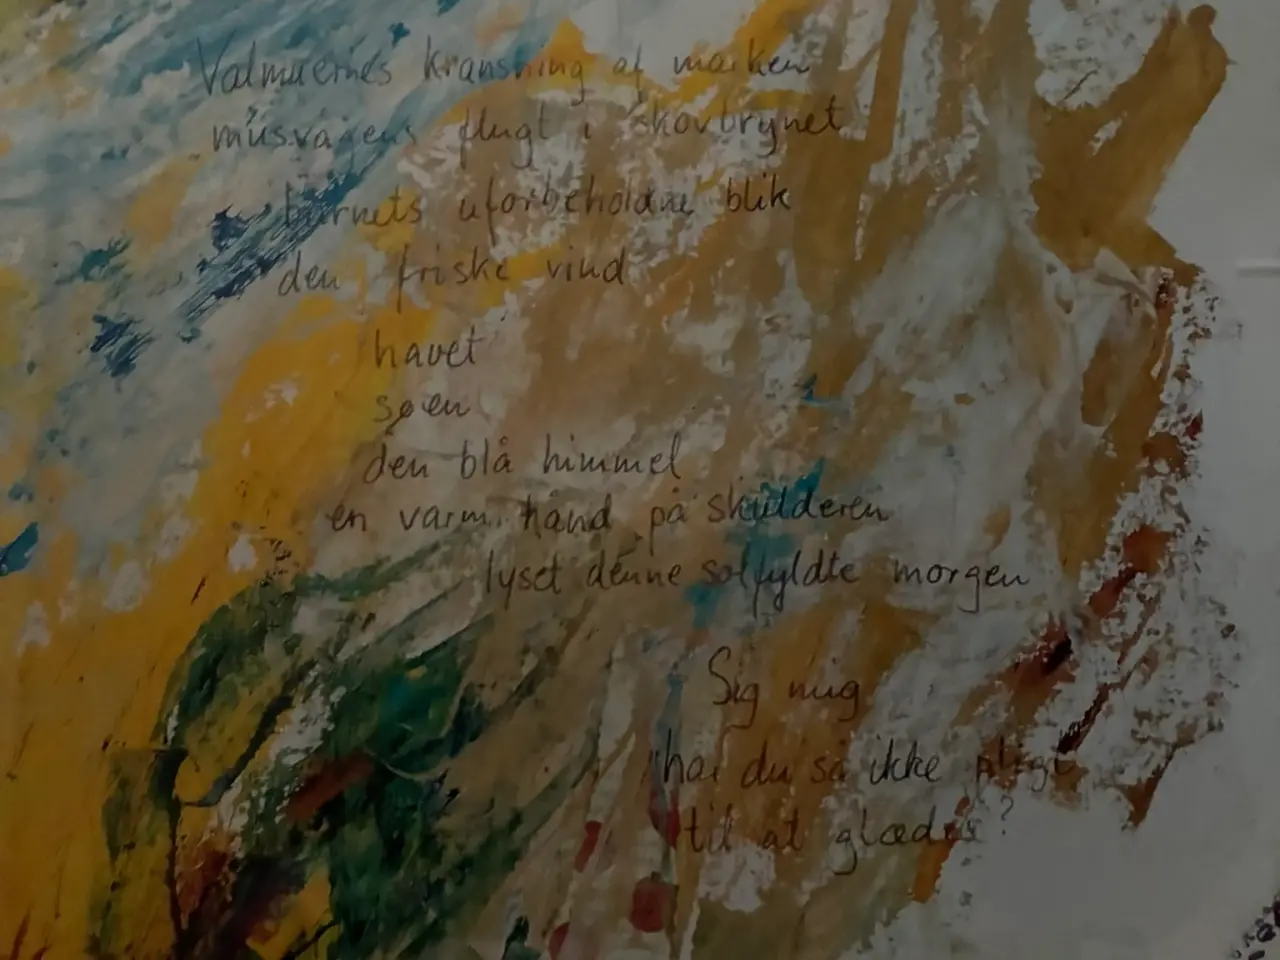 Valmuernes kransning af marken
musvågens flugt i skovbrynet
barnets uforbeholdne blik
den friske vind
havet
søen
den blå himmel
en varm hånd på skulderen
lyset denne solfyldte morgen
Sig mig
har du så ikke pligt
til at glædes?